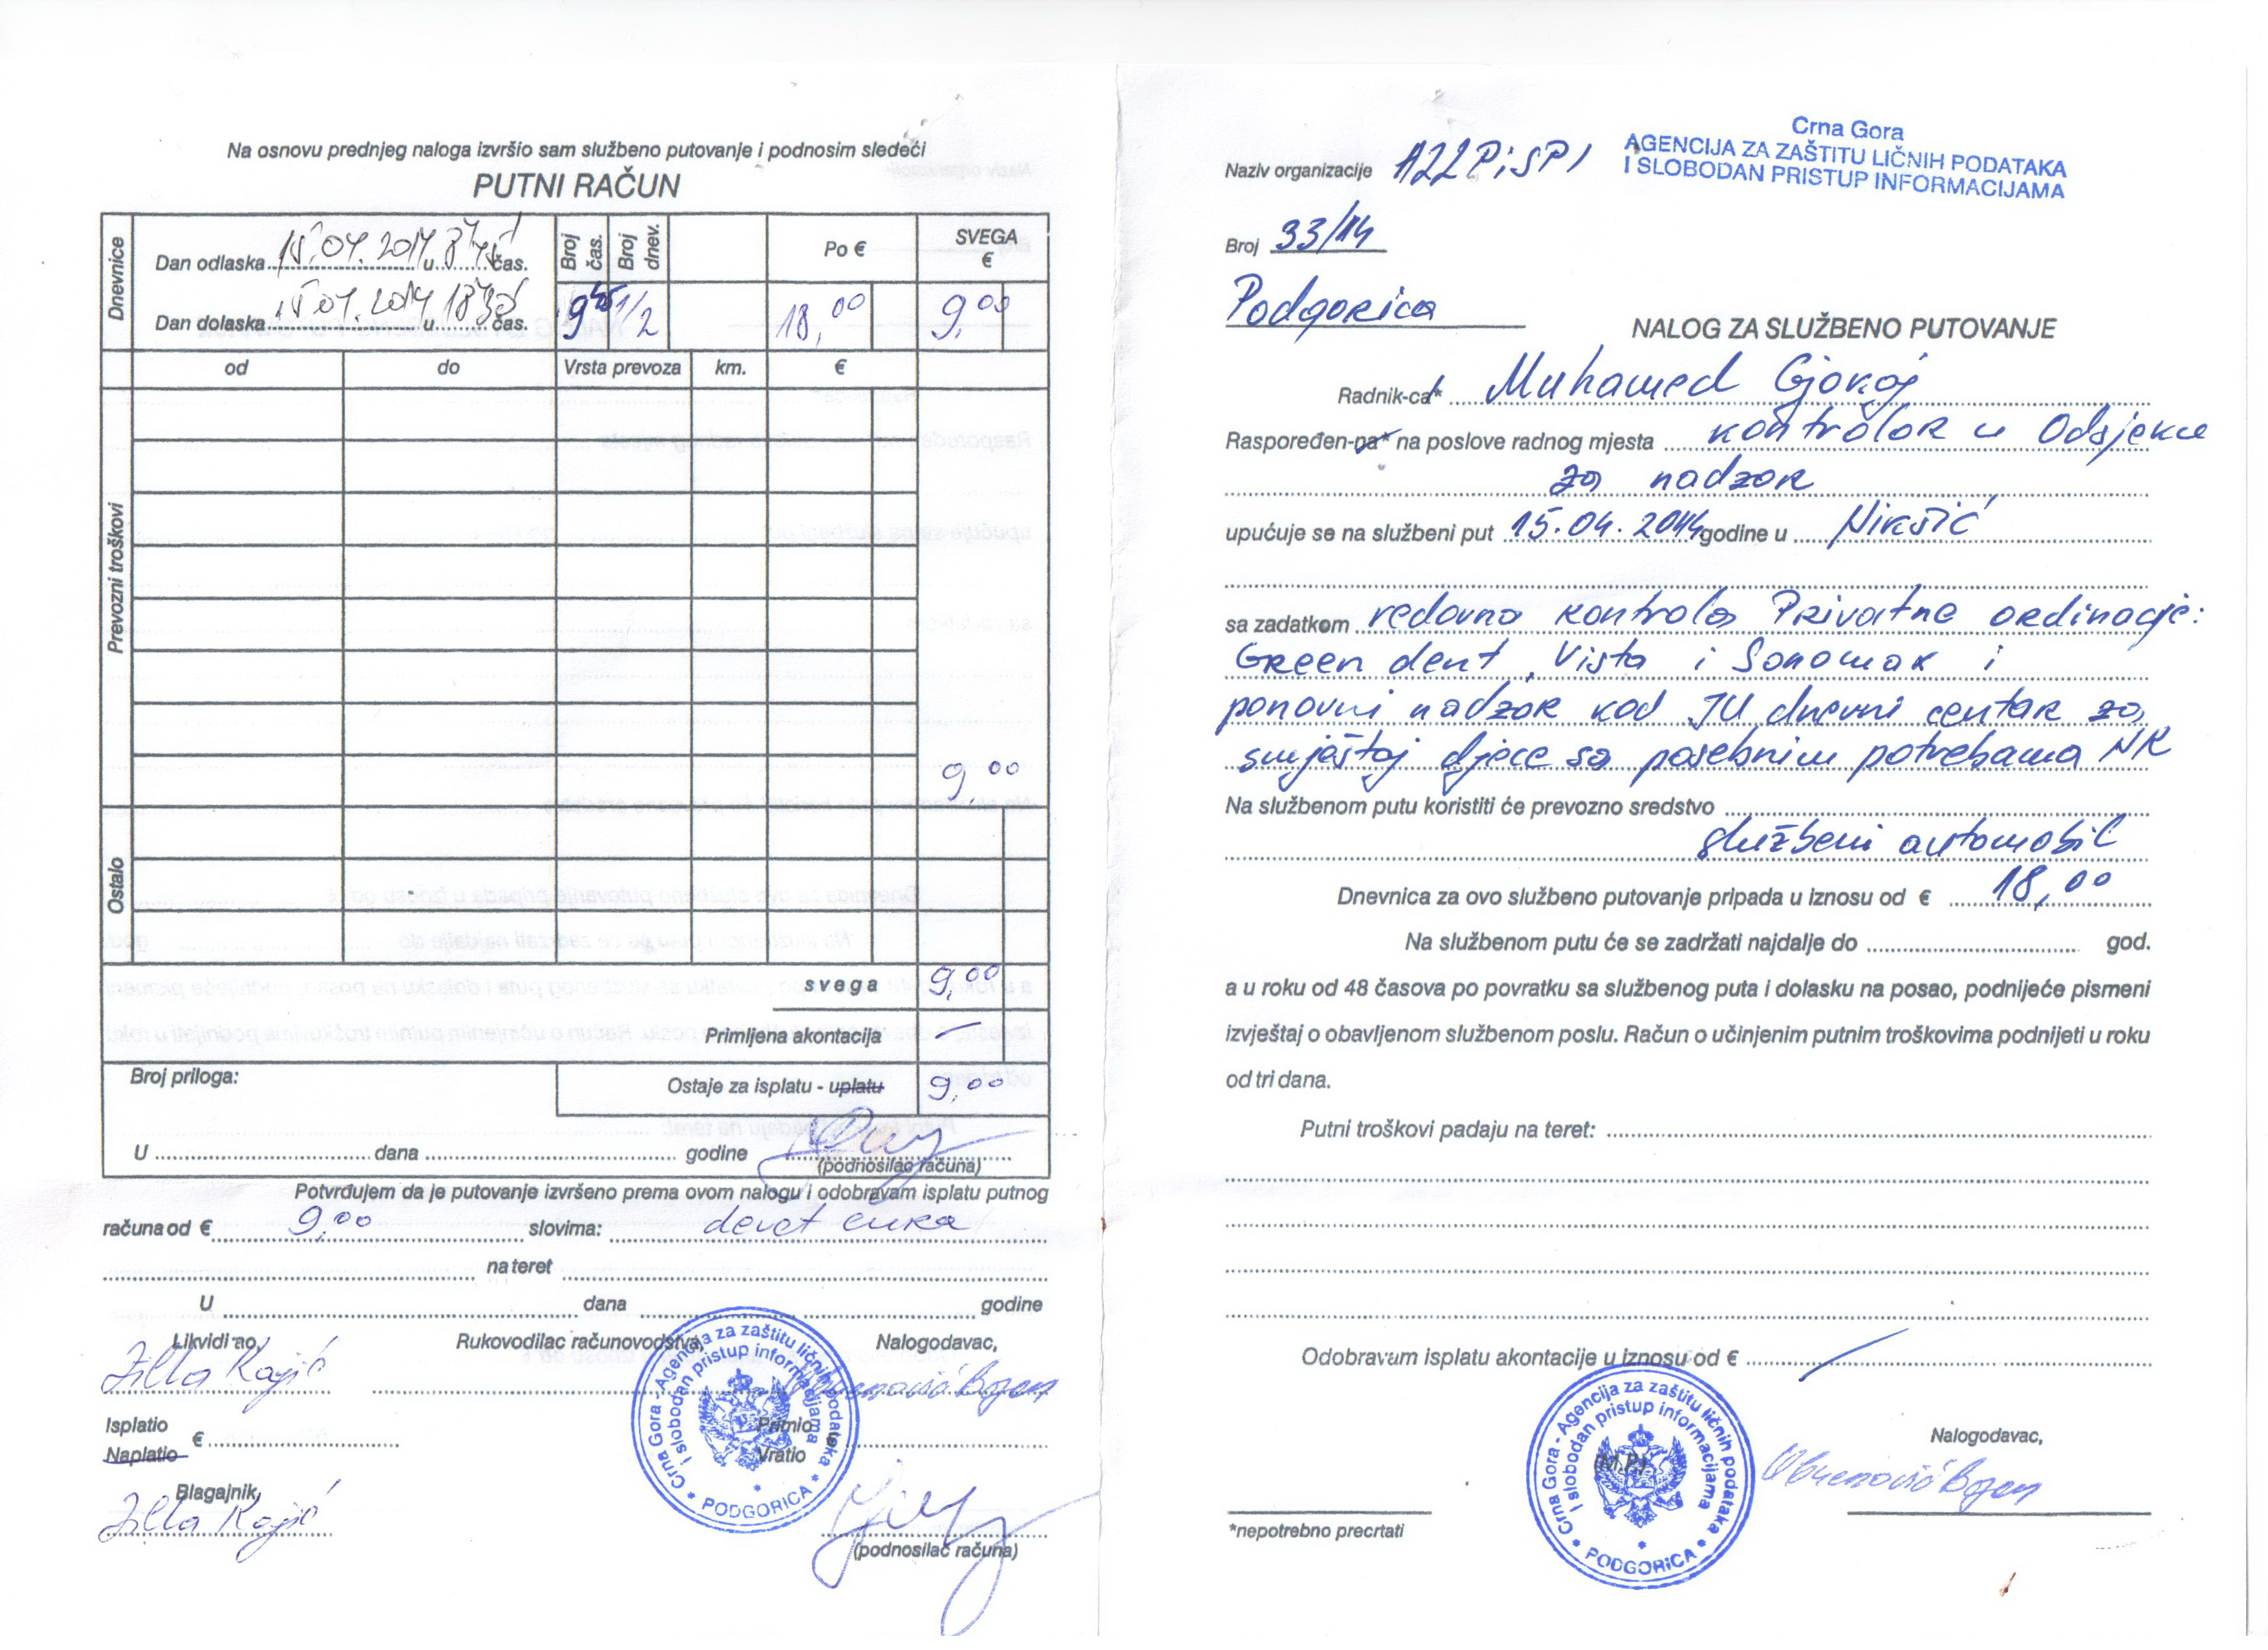 Na osnovu prednjeg naloga izvršio sam službeno putovanje i podnosim sledeći
PUTNI RAČUN
Dnevnice
Dan odlaska 15.04.2014 u 8 45 čas.
Broj čas.
Broj dnev.
Po €
SVEGA €
Dan dolaska 15.04.2014 u 18 30 čas.
9 45
1/2
18,00
9,00
od
do
Vrsta prevoza
km.
€
Prevozni troškovi
9,00
Ostalo
svega 9,00
Primljena akontacija –
Broj priloga:
Ostaje za isplatu - uplatu 9,00
U dana godine
(podnosilac računa)
Potvrđujem da je putovanje izvršeno prema ovom nalogu i odobravam isplatu putnog
računa od € 9,00 slovima: devet eura
na teret
U dana godine
Likvidirao,
Rukovodilac računovodstva,
Nalogodavac,
Isplatio
Naplatio €
Primio
Vratio €
Blagajnik,
(podnosilac računa)
Crna Gora - Agencija za zaštitu ličnih podataka
i slobodan pristup informacijama
PODGORICA
Crna Gora
AGENCIJA ZA ZAŠTITU LIČNIH PODATAKA
I SLOBODAN PRISTUP INFORMACIJAMA
Naziv organizacije AZLPiSPI
Broj 33/14
Podgorica
NALOG ZA SLUŽBENO PUTOVANJE
Radnik-ca* Muhamed Gjokaj
Raspoređen-na* na poslove radnog mjesta kontrolor u Odsjeku
za nadzor
upućuje se na službeni put 15.04.2014 godine u Nikšić
sa zadatkom redovna kontrola Privatne ordinacije:
Green dent, Vista i Sonomak i
ponovni nadzor kod JU dnevni centar za
smještaj djece sa posebnim potrebama NK
Na službenom putu koristiti će prevozno sredstvo
službeni automobil
Dnevnica za ovo službeno putovanje pripada u iznosu od € 18,00
Na službenom putu će se zadržati najdalje do god.
a u roku od 48 časova po povratku sa službenog puta i dolasku na posao, podnijeće pismeni
izvještaj o obavljenom službenom poslu. Račun o učinjenim putnim troškovima podnijeti u roku
od tri dana.
Putni troškovi padaju na teret:
Odobravam isplatu akontacije u iznosu od € /
Nalogodavac,
(M.P.)
*nepotrebno precrtati
Crna Gora - Agencija za zaštitu ličnih podataka
i slobodan pristup informacijama
PODGORICA